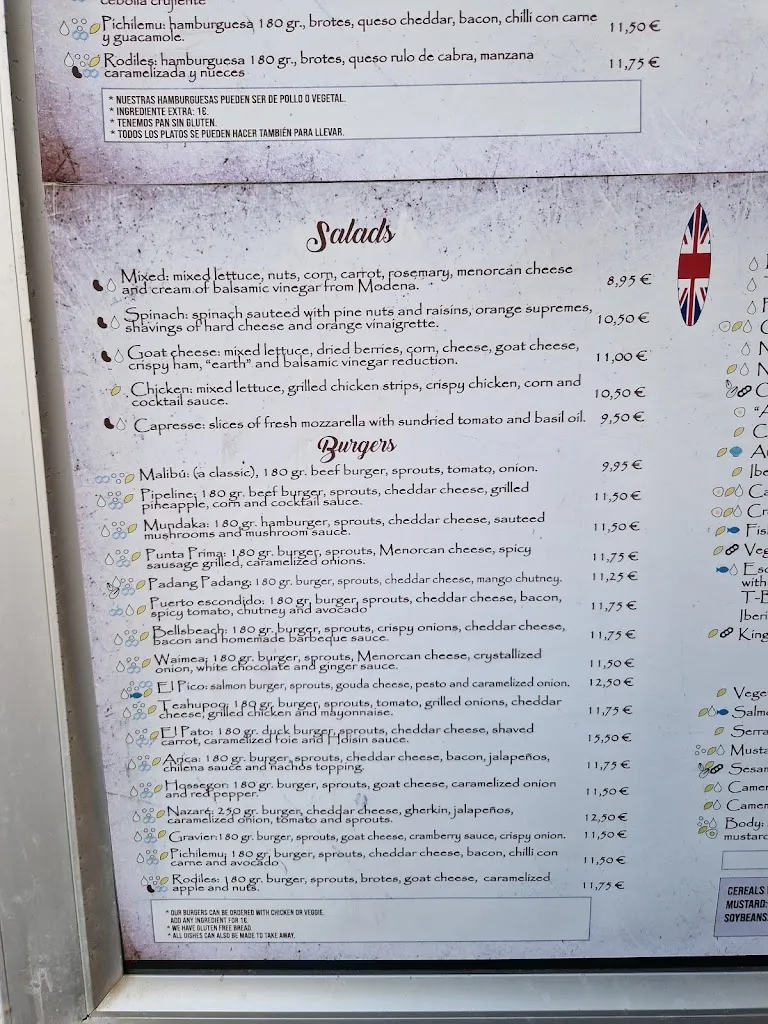 cebolla crujiente
Pichilemu: hamburguesa 180 gr., brotes, queso cheddar, bacon, chilli con carne
y guacamole.
11,50 €
Rodiles: hamburguesa 180 gr., brotes, queso rulo de cabra, manzana
caramelizada y nueces
11,75 €
* NUESTRAS HAMBURGUESAS PUEDEN SER DE POLLO O VEGETAL.
* INGREDIENTE EXTRA: 1€.
* TENEMOS PAN SIN GLUTEN.
* TODOS LOS PLATOS SE PUEDEN HACER TAMBIÉN PARA LLEVAR.
Salads
Mixed: mixed lettuce, nuts, corn, carrot, rosemary, menorcan cheese
and cream of balsamic vinegar from Modena.
8,95 €
Spinach: spinach sauteed with pine nuts and raisins, orange supremes,
shavings of hard cheese and orange vinaigrette.
10,50 €
Goat cheese: mixed lettuce, dried berries, corn, cheese, goat cheese,
crispy ham, "earth" and balsamic vinegar reduction.
11,00 €
Chicken: mixed lettuce, grilled chicken strips, crispy chicken, corn and
cocktail sauce.
10,50 €
Capresse: slices of fresh mozzarella with sundried tomato and basil oil. 9,50 €
Burgers
Malibú: (a classic), 180 gr. beef burger, sprouts, tomato, onion. 9,95 €
Pipeline: 180 gr. beef burger, sprouts, cheddar cheese, grilled
pineapple, corn and cocktail sauce.
11,50 €
Mundaka: 180 gr. hamburger, sprouts, cheddar cheese, sauteed
mushrooms and mushroom sauce.
11,50 €
Punta Prima: 180 gr. burger, sprouts, Menorcan cheese, spicy
sausage grilled, caramelized onions.
11,75 €
Padang Padang: 180 gr. burger, sprouts, cheddar cheese, mango chutney. 11,25 €
Puerto escondido: 180 gr, burger, sprouts, cheddar cheese, bacon,
spicy tomato, chutney and avocado
11,75 €
Bellsbeach: 180 gr. burger, sprouts, crispy onions, cheddar cheese,
bacon and homemade barbeque sauce.
11,75 €
Waimea: 180 gr. burger, sprouts, Menorcan cheese, crystallized
onion, white chocolate and ginger sauce.
11,50 €
El Pico: salmon burger, sprouts, gouda cheese, pesto and caramelized onion. 12,50 €
Teahupoo: 180 gr. burger, sprouts, tomato, grilled onions, cheddar
cheese, grilled chicken and mayonnaise.
11,75 €
El Pato: 180 gr. duck burger, sprouts, cheddar cheese, shaved
carrot, caramelized foie and Hoisin sauce.
15,50 €
Arica: 180 gr. burger, sprouts, cheddar cheese, bacon, jalapeños,
chilena sauce and nachos topping.
11,75 €
Hossegor: 180 gr. burger, sprouts, goat cheese, caramelized onion
and red pepper.
11,50 €
Nazaré: 250 gr. burger, cheddar cheese, gherkin, jalapeños,
caramelized onion, tomato and sprouts.
12,50 €
Gravier: 180 gr. burger, sprouts, goat cheese, cramberry sauce, crispy onion. 11,50 €
Pichilemu: 180 gr. burger, sprouts, cheddar cheese, bacon, chilli con
carne and avocado
11,50 €
Rodiles: 180 gr. burger, sprouts, brotes, goat cheese, caramelized
apple and nuts.
11,75 €
* OUR BURGERS CAN BE ORDERED WITH CHICKEN OR VEGGIE.
ADD ANY INGREDIENT FOR 1€.
* WE HAVE GLUTEN FREE BREAD.
* ALL DISHES CAN ALSO BE MADE TO TAKE AWAY.
Ibe
Ca
Cr
Fis
Veg
Esc
with
T-B
Iberi
King
Vege
Salmo
Serra
Musta
Sesam
Camer
Camer
Body:
mustard
CEREALS
MUSTARD:
SOYBEANS